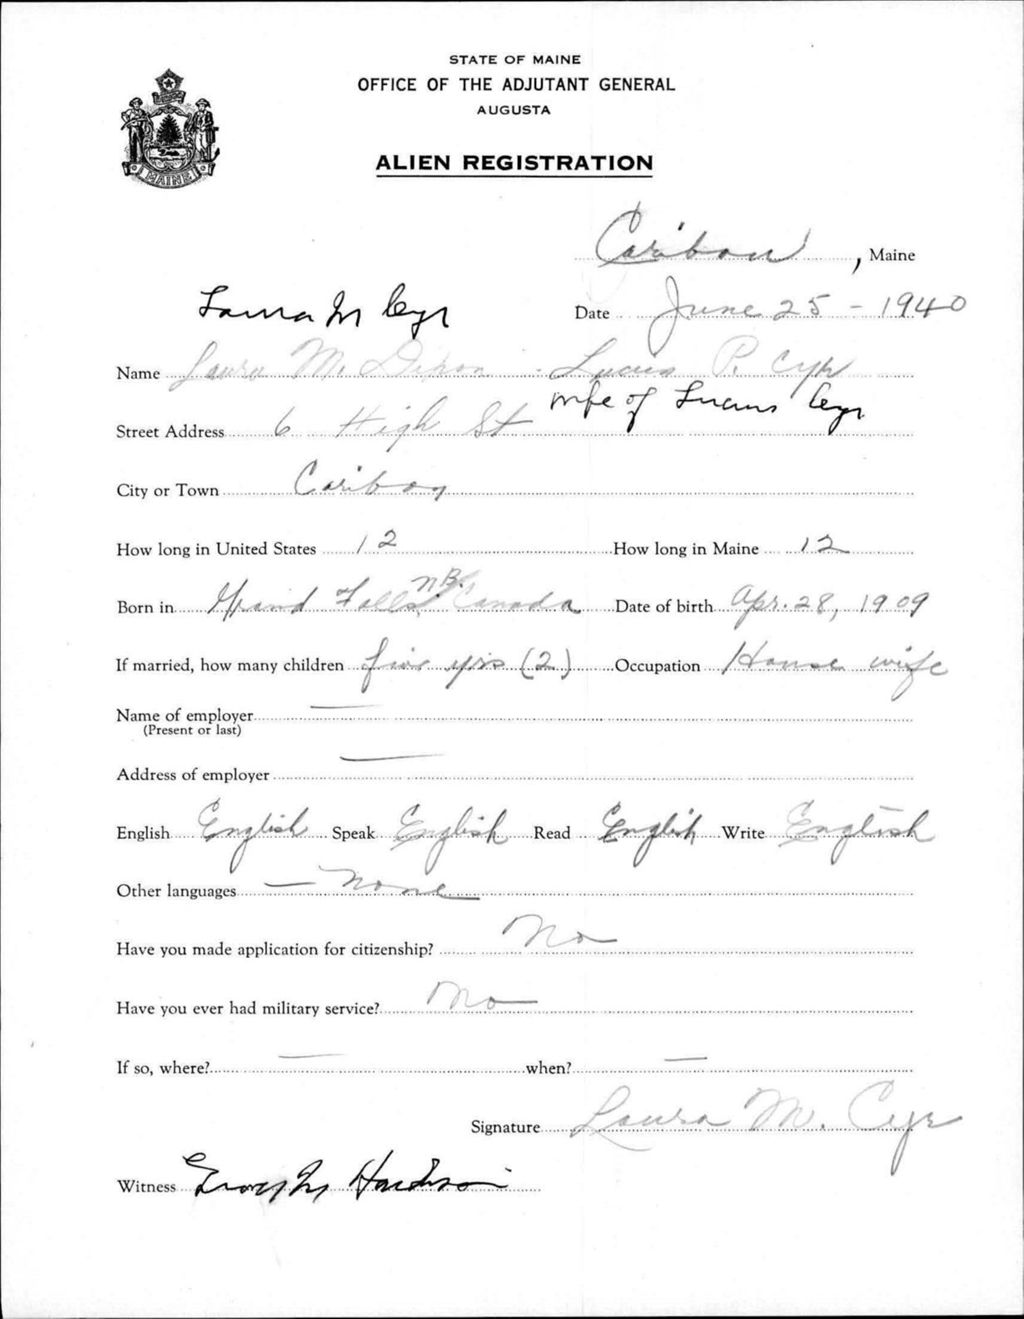 STATE OF MAINE
OFFICE OF THE ADJUTANT GENERAL
AUGUSTA
MAINE
ALIEN REGISTRATION
Caribou, Maine
Laura M Cyr
Date June 25 - 1940
Name Laura M. Dixon - Lucius P. Cyr
wife of Lucius Cyr
Street Address 6 High St
City or Town Caribou
How long in United States 12 How long in Maine 12
Born in Grand Falls, N.B. Canada Date of birth Apr. 28, 1909
If married, how many children five yrs (2) Occupation House wife
Name of employer —
(Present or last)
Address of employer —
English English Speak English Read English Write English
Other languages — none
Have you made application for citizenship? No
Have you ever had military service? No
If so, where? — when? —
Signature Laura M. Cyr
Witness Hardison